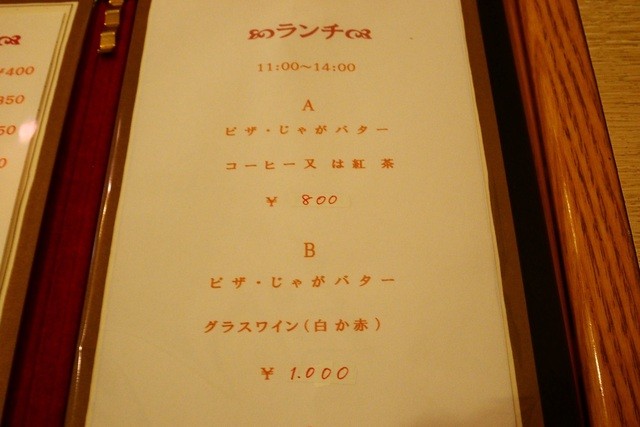 ¥400
350
50
0
ランチ
11:00～14:00
A
ピザ・じゃがバター
コーヒー又は紅茶
¥ 800
B
ピザ・じゃがバター
グラスワイン(白か赤)
¥ 1.000